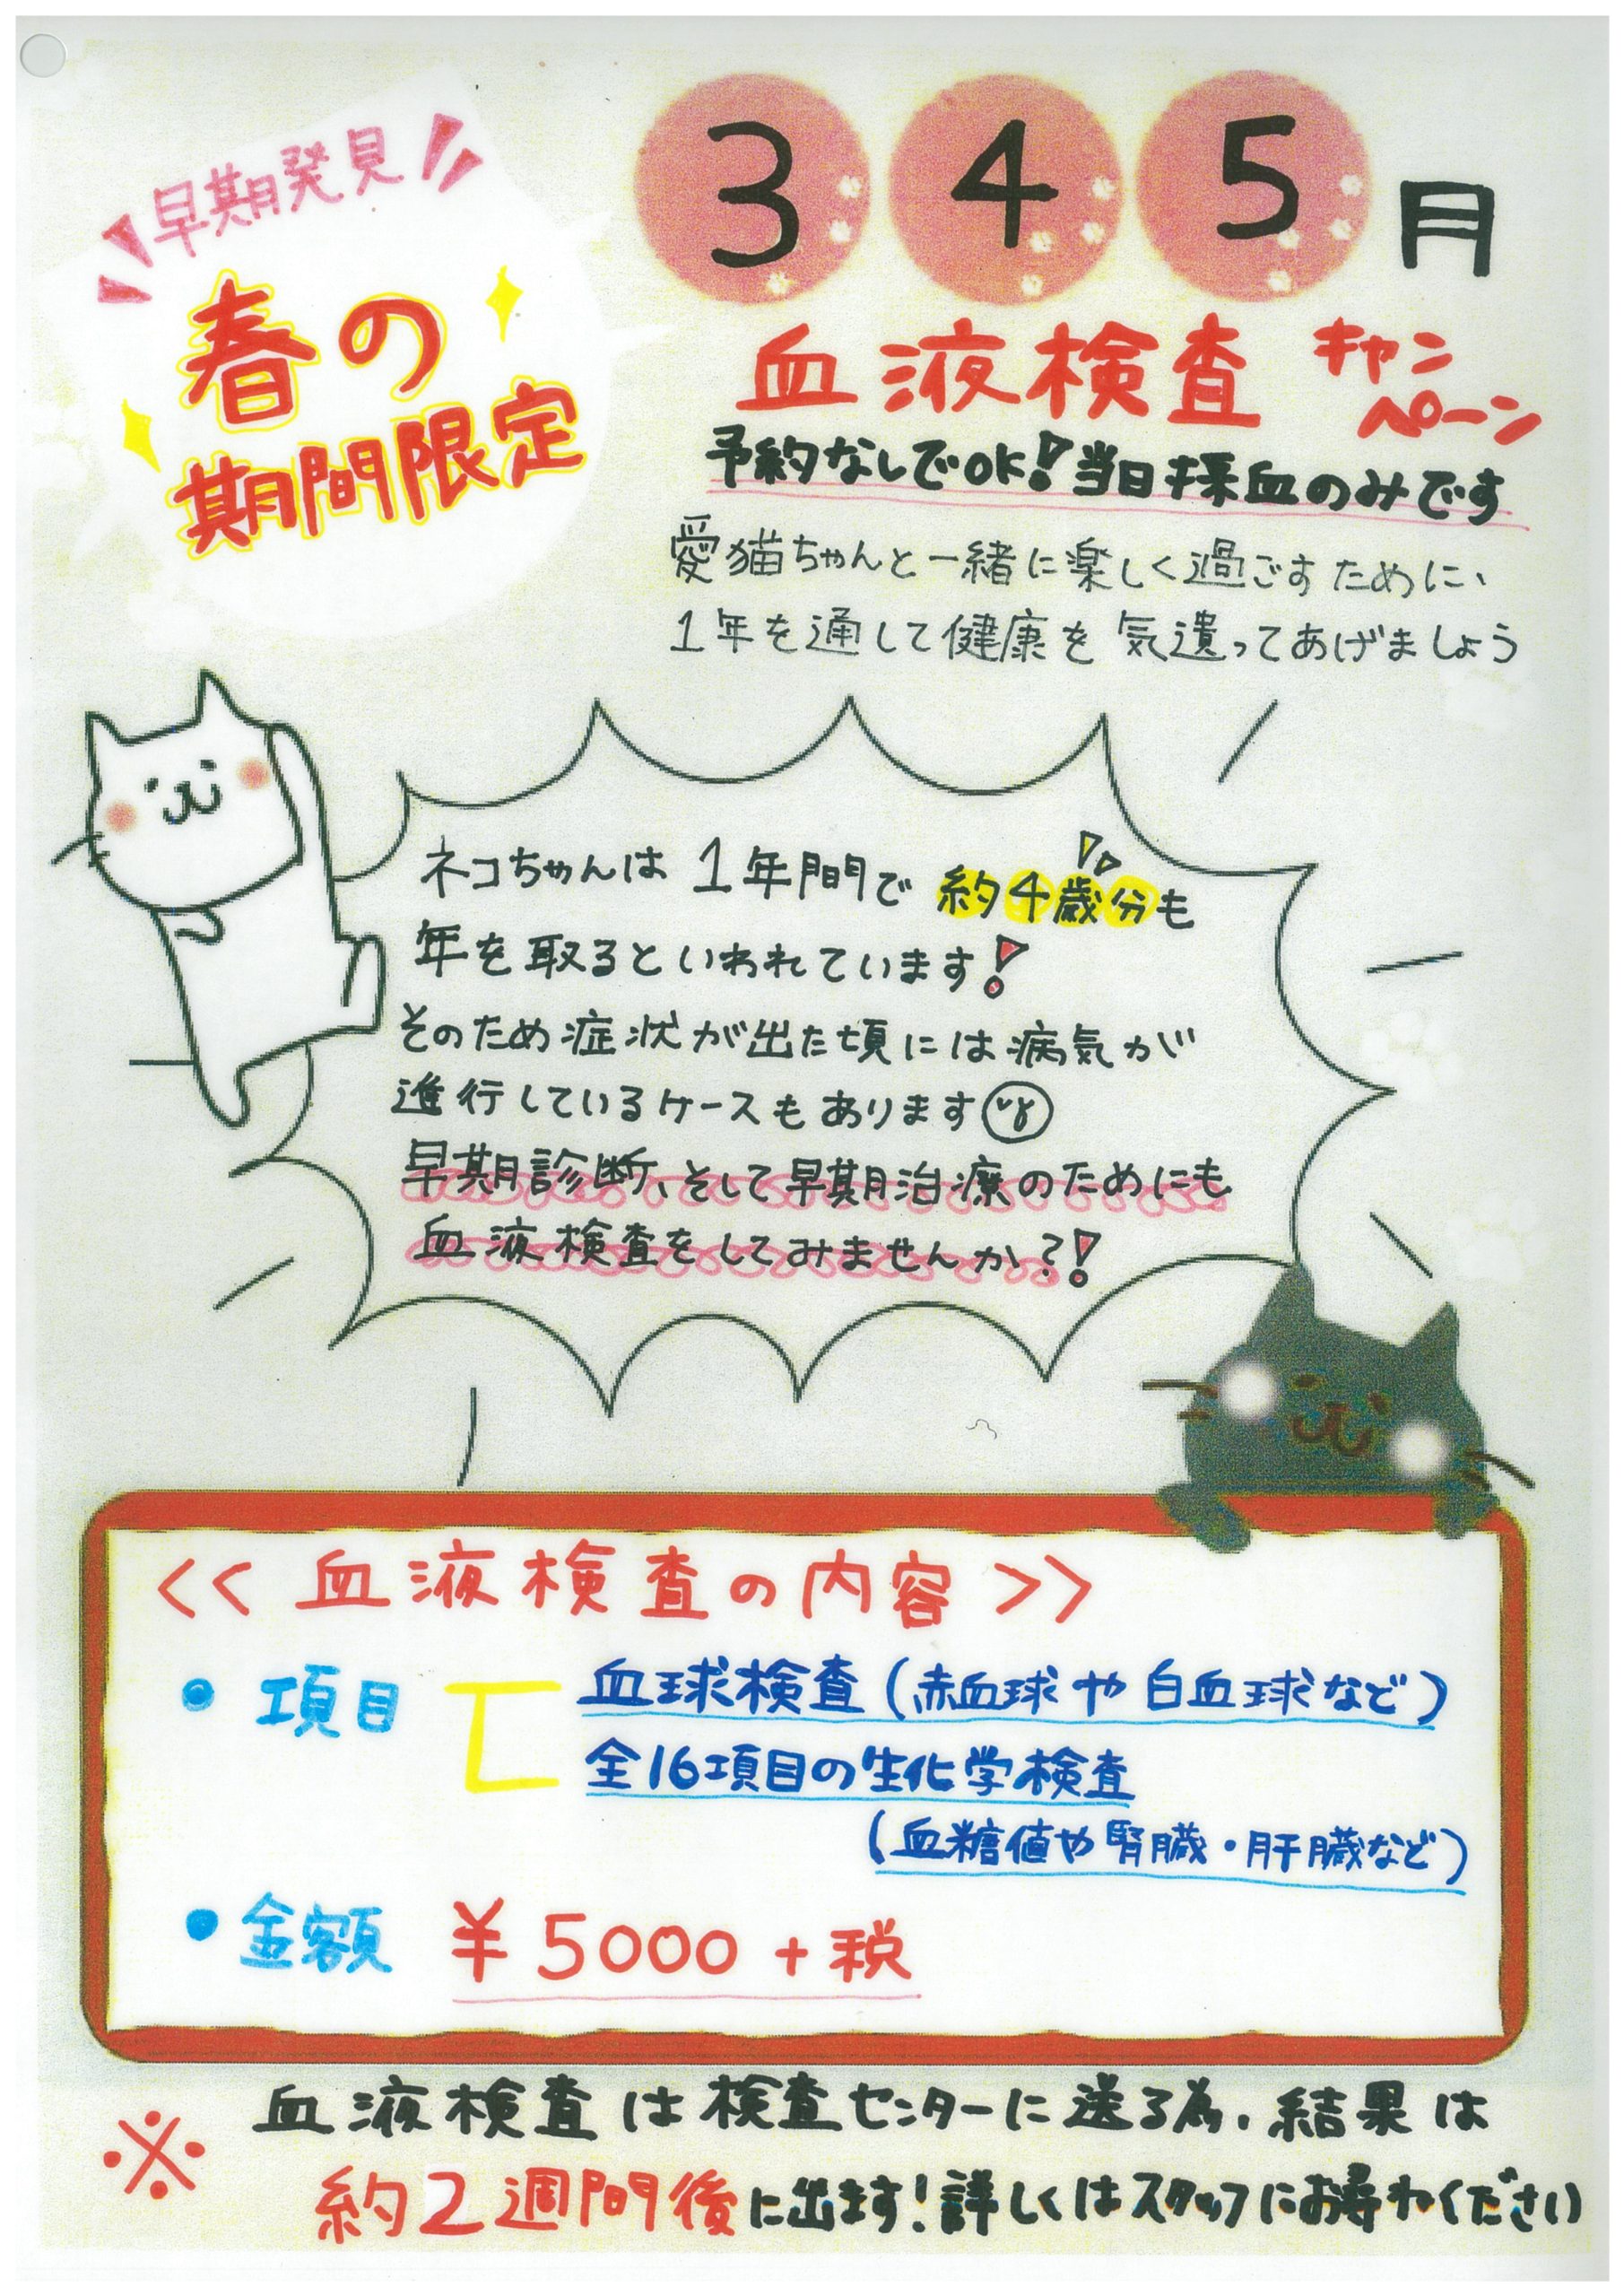 早期発見
春の
期間限定
3 4 5月
血液検査 キャンペーン
予約なしでOK!当日採血のみです
愛猫ちゃんと一緒に楽しく過ごすために、
1年を通して健康を気遣ってあげましょう
ネコちゃんは1年間で約4歳分も
年を取るといわれています!
そのため症状が出た頃には病気が
進行しているケースもあります
早期診断、そして早期治療のためにも
血液検査をしてみませんか?!
<<血液検査の内容>>
• 項目 血球検査(赤血球や白血球など)
全16項目の生化学検査
(血糖値や腎臓・肝臓など)
• 金額 ¥5000+税
※ 血液検査は検査センターに送る為、結果は
約2週間後に出ます!詳しくはスタッフにお尋ねください